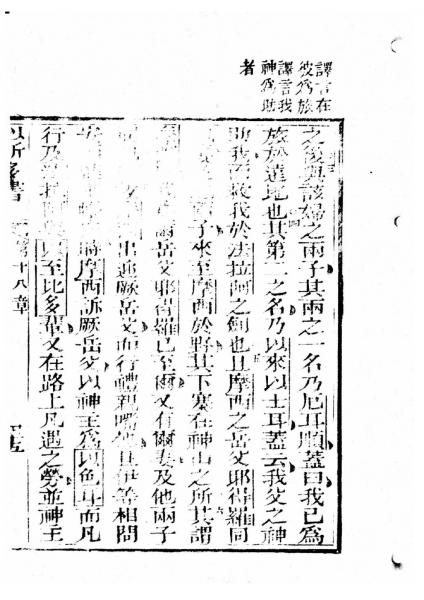 譯言在
彼為旅
譯言我
神為助
者
之後與該婦之兩子其兩之一名乃厄耳順蓋曰我已為
旅於遠地也其第二之名乃以來以士耳蓋云我父之神
助我而救我於法拉阿之劍也且摩西之岳父耶得羅同
子來至摩西於野其下寨在神山之所其謂
岳父耶得羅已至爾又有爾妻及他兩子
出迎厥岳父而行禮親嘴且伊等相問
摩西訴厥岳父以神主為以色耳而凡
行乃至比多輩又在路上凡遇之勞並神主
以所多書 第十八章